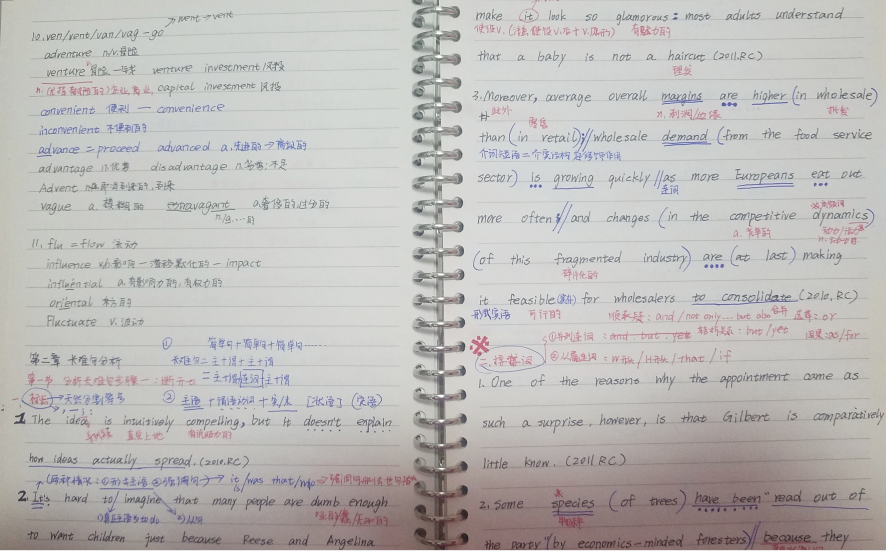 10. ven/vent/van/vag - go
adventure n/v.冒险
venture 冒险 venture investment 风投
capital investment 风投
convenient 便利 — convenience
inconvenient 不便利的
advance = proceed advanced a.先进的→高级的
advantage n.优势 disadvantage n.劣势;不足
Advent 到来
vague a.模糊的 a.奢侈的,过分的
11. flu = flow 流动
influence 影响 — 潜移默化的 - impact
influential a.有影响力的,有权力的
oriental 东方的
Fluctuate v.波动
① 简单句+简单句+简单句……
第二章 长难句分析 长难句=主+谓+主+谓
第一节 分析长难句步骤一:断开
=主+谓+连词+主+谓
标点→天然分割符号
② 主语+谓语动词+ [状语] (定语)
1. The idea is intuitively compelling, but it doesn't explain
直觉上地
how ideas actually spread. (2010.RC)
it is/was that/who
2. It's hard to imagine that many people are dumb enough
to want children just because Reese and Angelina
make (it) look so glamorous: most adults understand
有魅力的
that a baby is not a haircut (2011.RC)
理发
3. Moreover, average overall margins are higher (in wholesale)
此外 n.利润/边缘 批发
than (in retail); // wholesale demand (from the food service
零售
sector) is growing quickly // as more Europeans eat out
连词
more often // and changes (in the competitive dynamics)
a.竞争的
(of this fragmented industry) are (at last) making
碎片化的
it feasible for wholesalers to consolidate (2010.RC)
形式宾语 可行的 合并
顺承疑: and/not only... but also 选择: or
①并列连词: and. but. yet 转折关系: but/yet 因果: as/for
二、连接词 ②从属连词: that/if
1. One of the reasons why the appointment came as
such a surprise, however, is that Gilbert is comparatively
little know. (2011.RC)
2. Some species (of trees) have been "read out of
物种
the party" (by economics-minded foresters) // because they